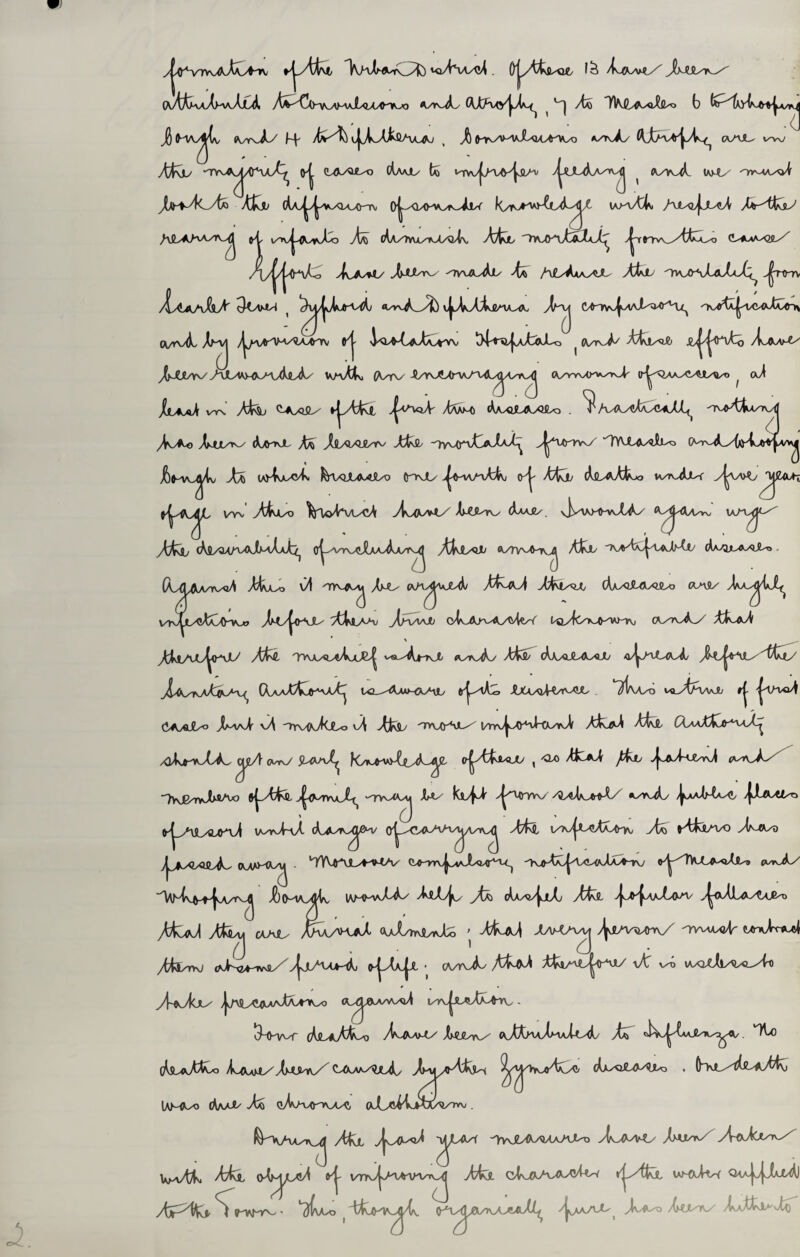 formation of the Urban District. Of these 13 have been
attributed to Convulsions and Atrophy, 4 to Measles 6 to Whooping
Cough and 4 to Diphtheria, Convulsions and Atrophy are in
the majority of cases due to improper feeding, and we must
look to the diffusion of knowledge with respect to the
rearing of infants to diminish the mortality from these causes
Efforts have been made to reduce the mortality from
Scarlet Fever, Typhoid and Diphtheria by compulsory notification
and by provision of Isolation Hospitals, and these efforts have
been rewarded with an encouraging amount of success, at
least in the case of the first two diseases. Practically nothing
has been done to lessen the mortality from Measles and Whooping
Cough to which diseases one fourth of the deaths under five years
of age in this District have been due. I would again urge
the desirability of including these among the notifiable diseases.
Against this it may be argued that these diseases are highly
infectious before their true character is known and that
therefore the mischief is done and the disease spread before the
Sanitary Authority is aware of its existence. This is true of first
cases but it makes it the more important that the Authority
should get an early knowledge of these, so that the patient and
members of the family may be kept from school and public places
of resort until danger of carrying the infection to others has
passed away. Moreover compulsory notification of Measles and
Whooping Cough would help to dispel the popular fallacies
that they are trivial ailments; that every person must contract
them at some period of life; and that therefore it is useless to
take precautions against infection.
Four deaths have been attributed to Influenza. No
deaths have been caused by other Zymotic diseases. One death
was due to chronic alcoholism.
During the past year measures have been taken
with the object of improving the character of the water supplied
to the Town. This, though originally pure, has been hitherto
2.